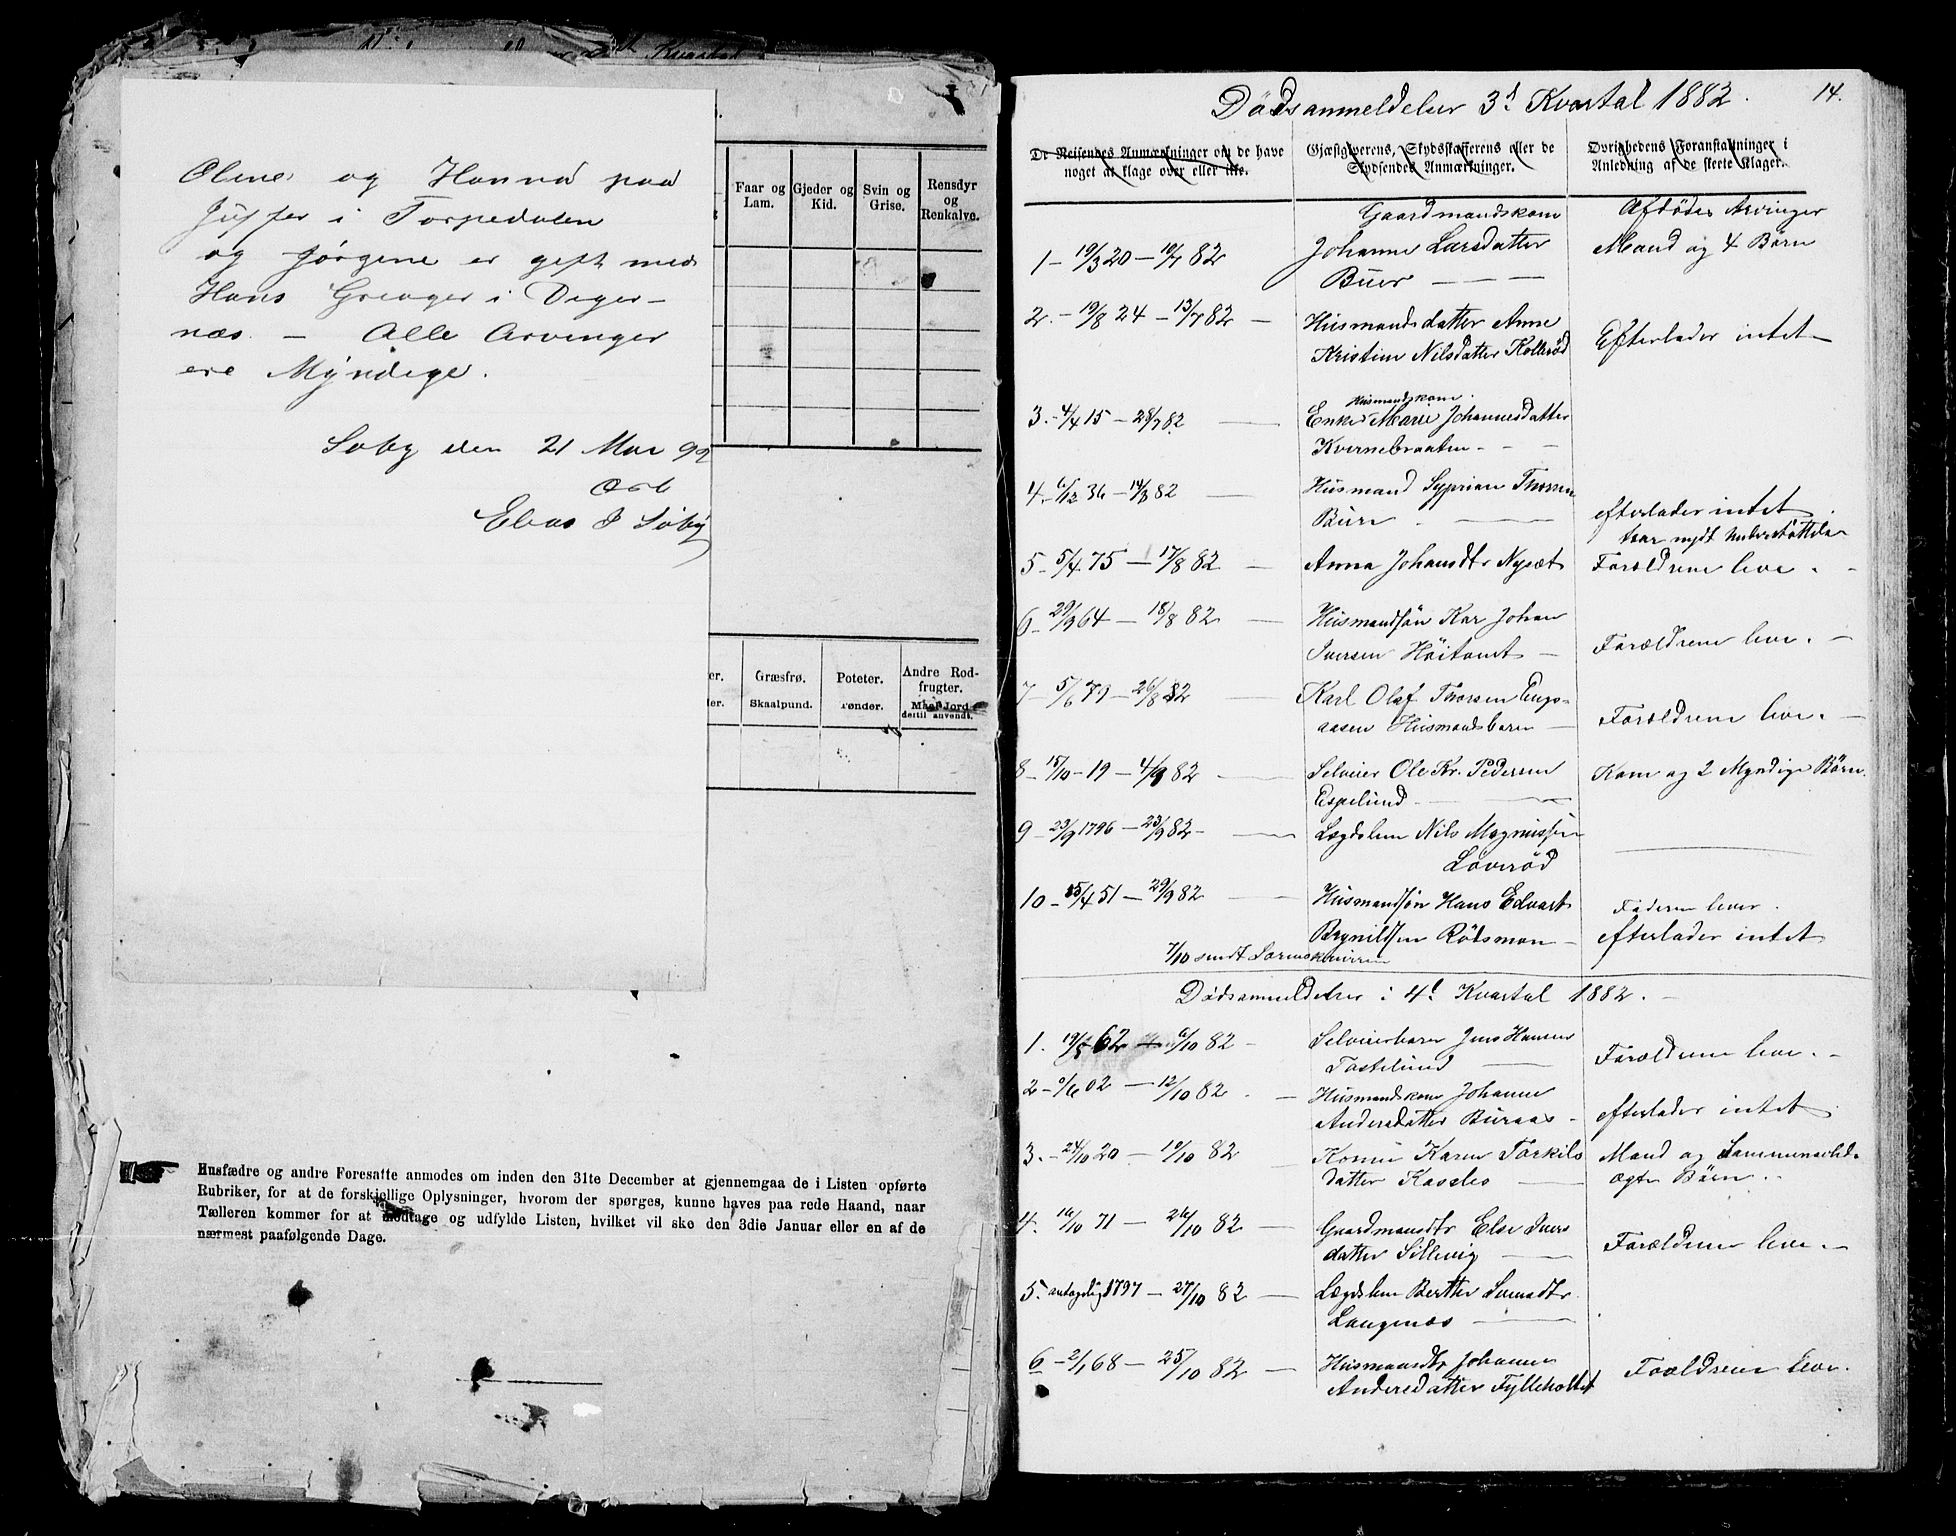 Olene og Hanna paa
Juffer i Torpedalen
og Jörgene er gift med
Hans Grenager i Deger-
næs. — Alle Arvinger
ere Myndige.
Soby den 21 Mar 92
Faar og Lam.
Gjeder og Kid.
Svin og Grise.
Rensdyr og Renkalve.
Græsfrø.
Poteter.
Andre Rodfrugter.
Skaalpund.
Tønder.
Maal Jord dertil anvendt.
Husfædre og andre Foresatte anmodes om inden den 31te December at gjennemgaa de i Listen opførte
Rubriker, for at de forskjellige Oplysninger, hvorom der spørges, kunne haves paa rede Haand, naar
Tælleren kommer for at modtage og udfylde Listen, hvilket vil ske den 3die Januar eller en af de
nærmest paafølgende Dage.
Dødsanmeldelser 3d Kvartal 1882. 14.
De Reisendes Anmærkninger om de have
noget at klage over eller ikke.
Gjæstgiverens, Skydsskafferens eller de
Skydsendes Anmærkninger.
Øvrighedens Foranstaltninger i
Anledning af de skeete Klager.
Gaardmandskone Afdødes Arvinger
1 - 19/3 20 - 19/7 82 Johanne Larsdatter Mand og 4 Børn
Buer
2. - 19/8 24 - 13/7 82 - Husmandsdatter Anne Efterlader intet
Kristine Nilsdatter Kollerød
Husmandskone.
3. - 4/4 15 - 28/7 82 Enke Marie Johannesdatter
Kvernebraaten
4. - 6/12 36 - 14/8 82 Husmand Syprian Thorsen efterlader intet
Buer har nydt Understøttelse
5 - 5/4 75 - 17/8 82 - Anna Johansdtr Nysæt Forældrene leve.
6 - 29/9 64 - 18/8 82 Husmandsøn Kar Johan
Iversen Höitomt Forældrene leve.
7 - 5/6 79 - 26/8 82 Karl Olaf Thorsen Engs-
aasen Husmandsbarn Forældrene leve.
8 - 15/10 - 19 - 4/9 82 Selveier Ole Kr. Pedersen Kone og 2 Myndige Børn.
Espelund
9 - 23/9 1796 - 23/9 82 - Lægdslem Nils Magnussen
Løverød
10 - 15/4 51 - 29/9 82 Husmandsøn Hans Edvart Faderen lever.
Brynildsen Rødsmon efterlader intet
7/10 sendt Sorenskriveren
Dødsanmeldelser i 4d Kvartal 1882.
1. 19/5 62 - 6/10 82 - Selveierbarn Jens Hansen Forældrene leve.
Tostelund
2 - 9/6 02 - 12/10 82. - Husmandskone Johanne
Andersdatter Buraas - efterlader intet.
3. - 24/10 20 - 19/10 82 - Konen Karen Torkils Mand og Sammenavlede
datter Kassles ægte Børn.
4. 16/10 71 - 26/10 82 - Gaardmandsdtr Else Ivers
datter Sillevig Forældrene leve.
5. antagelig 1797 - 27/10 82 - Lægdslem Berthe Svensdtr
Langenæs
6 - 2/1 68 - 25/10 82 - Husmandsdtr Johanne Forældrene leve.
Andersdatter Fylleholtet